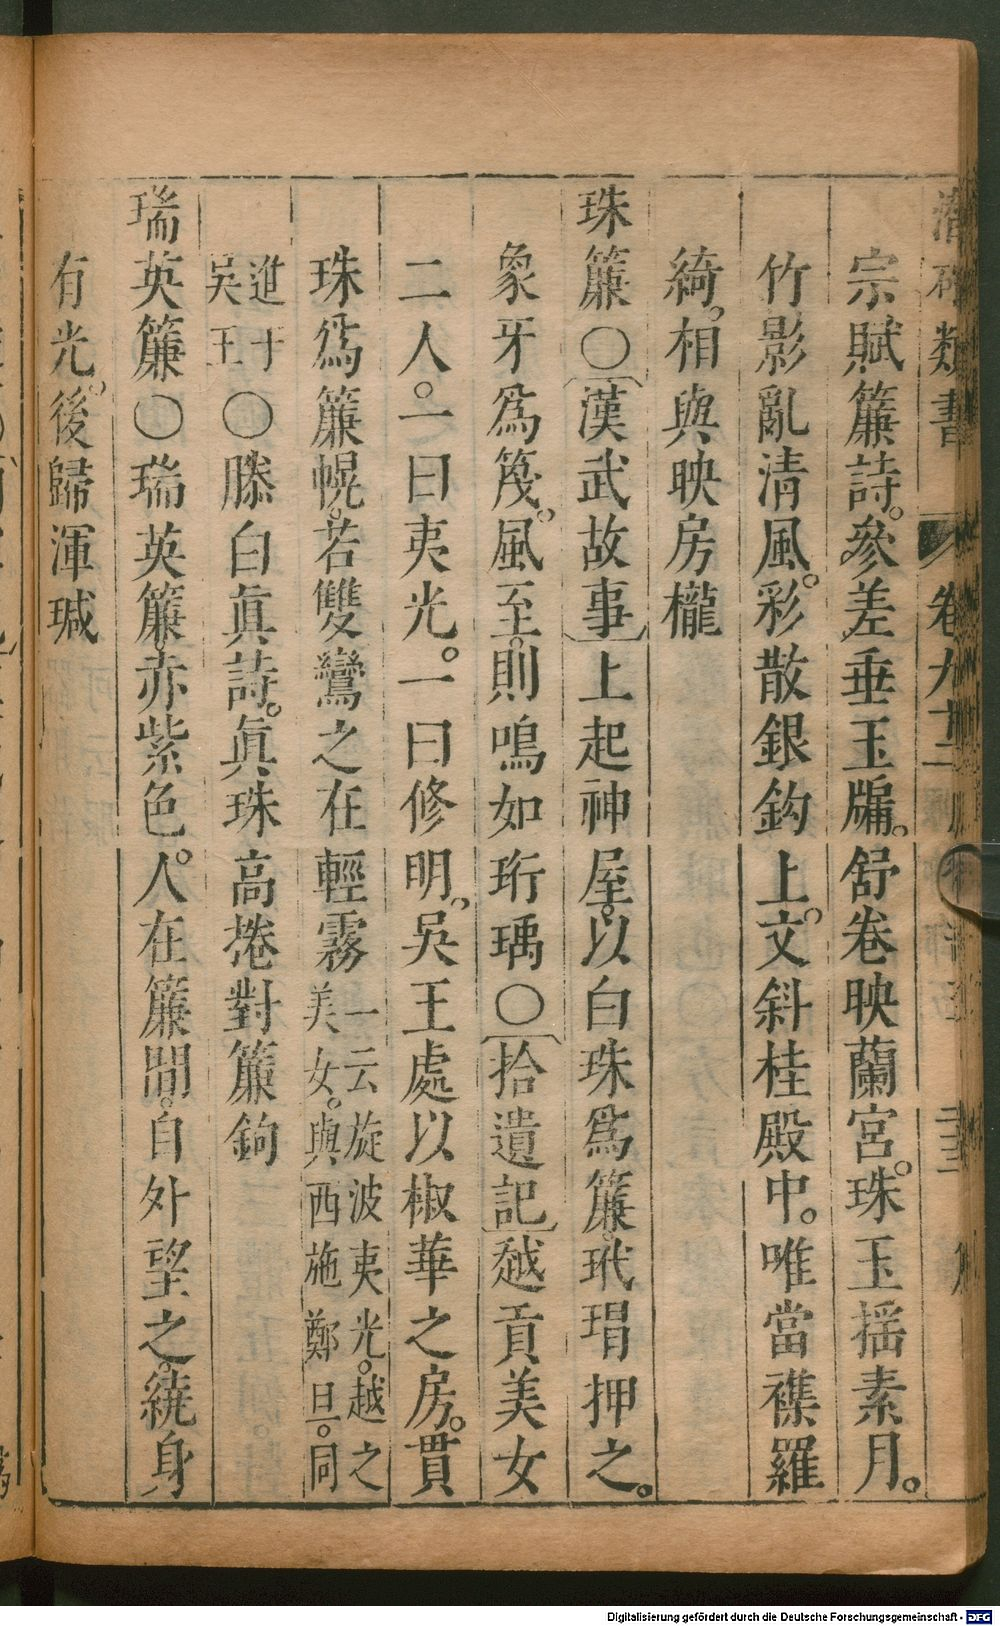 類書 卷九十二
宗賦簾詩。參差垂玉牖。舒卷映蘭宮。珠玉搖素月。
竹影亂清風。彩散銀鈎上。文斜桂殿中。唯當襍羅
綺。相與映房櫳
珠簾〇〔漢武故事〕上起神屋。以白珠爲簾。玳瑁押之。
象牙爲篾。風至。則鳴如珩瑀〇〔拾遺記〕越貢美女
二人。一曰夷光。一曰修明。吳王處以椒華之房。貫
珠爲簾幌。若雙鸞之在輕霧一云旋波夷光。越之美女。與西施鄭旦。同
進于吳王〇滕白眞詩。眞珠高捲對簾鉤
瑞英簾〇瑞英簾。亦紫色。人在簾間。自外望之。繞身
有光。後歸渾瑊
Digitalisierung gefördert durch die Deutsche Forschungsgemeinschaft - DFG